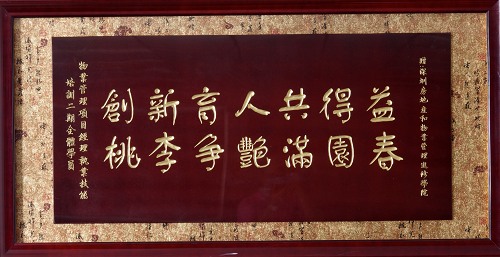 贈:深圳房地產和物業管理進修學院
創新育人共得益
桃李争艷滿園春
物業管理項目經理執業技能
培訓二期全體學員